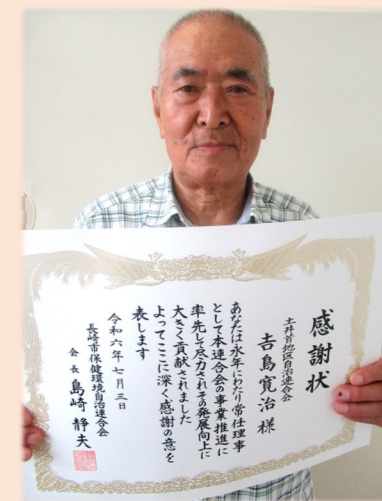 感謝状
土井首地区自治連合会
吉島寛治様
あなたは永年にわたり常任理事
として本連合会の事業推進に
率先して尽力されその発展向上に
大きく貢献されました
よってここに深く感謝の意を
表します
令和六年七月三日
長崎市保健環境自治連合会
会長 島崎静夫